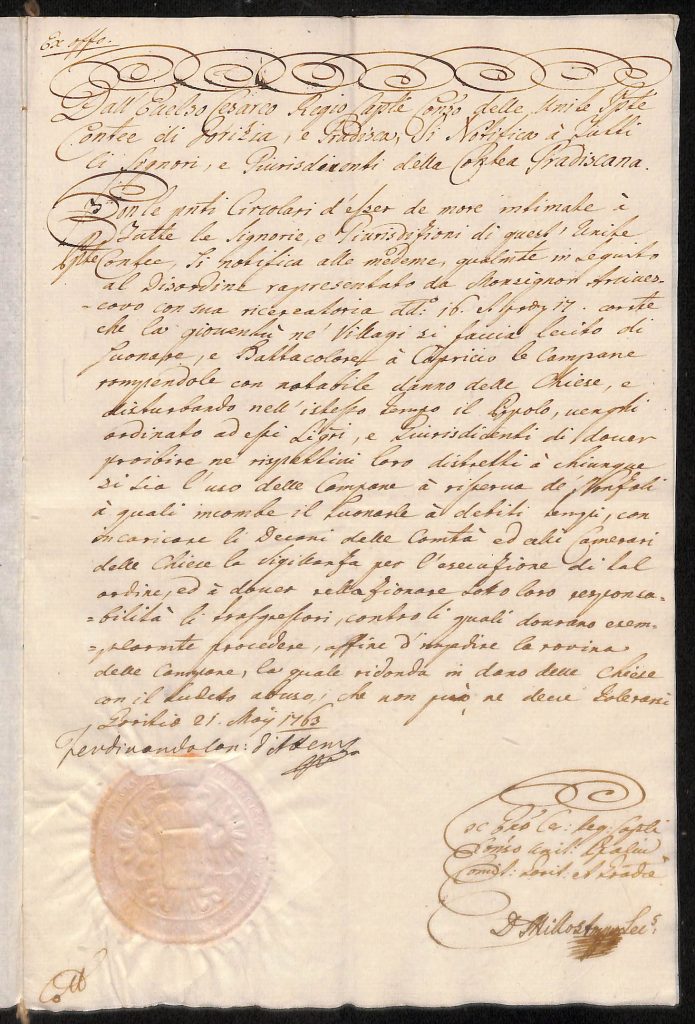 Ex offo.
Dall' Eccelso Cesareo Regio Caple Conso delle Unite Ppte
Contee di Gorizia, e Gradisca, Si Notifica à tutti
li Signori, e Giurisdicenti della Contea Gradiscana.
Con le pnti Circolari d'esser de more intimate à
Tutte le Signorie, e Giurisdizioni di quest' Unite
Ppte Contee, Si notifica alle medeme, qualmte in seguito
al Disordine rapresentato da Monsignor Arcives-
-covo con sua ricercatoria ddo: 16. 17. corrte
che la gioventù ne' Villagi si faccia lecito di
Suonare, e Battacolare à Capricio le Campane
rompendole con notabile danno delle Chiese, e
disturbando nell' istesso tempo il Popolo, venghi
ordinato ad essi Sigri, e Giurisdicenti di dover
proibire ne rispettivi loro distretti à chiunque
si sia l'uso delle Campane à riserva de' Monsoli
à quali incombe il Suonarle à debiti tempi, con
incaricare li Decani delle Comtà ed alli Camerari
delle Chiese la Vigilanza per l'esecuzione di tal
ordine, ed à dover rellazionare Soto loro responsa-
-bilità li trasgressori, contro li quali dovrano esem-
-plarmte procedere, affine d'impedire la rovina
delle Campane, la quale ridonda in dano delle Chiese
con il sudeto abuso, che non può, ne deve tolerarsi
Goritia 21. Maÿ 1763
Ferdinando Con: d'Attems
Ex Cons Cæ: Reg: Capli
Conso Unit:
Comit: Gorit. et Gradæ